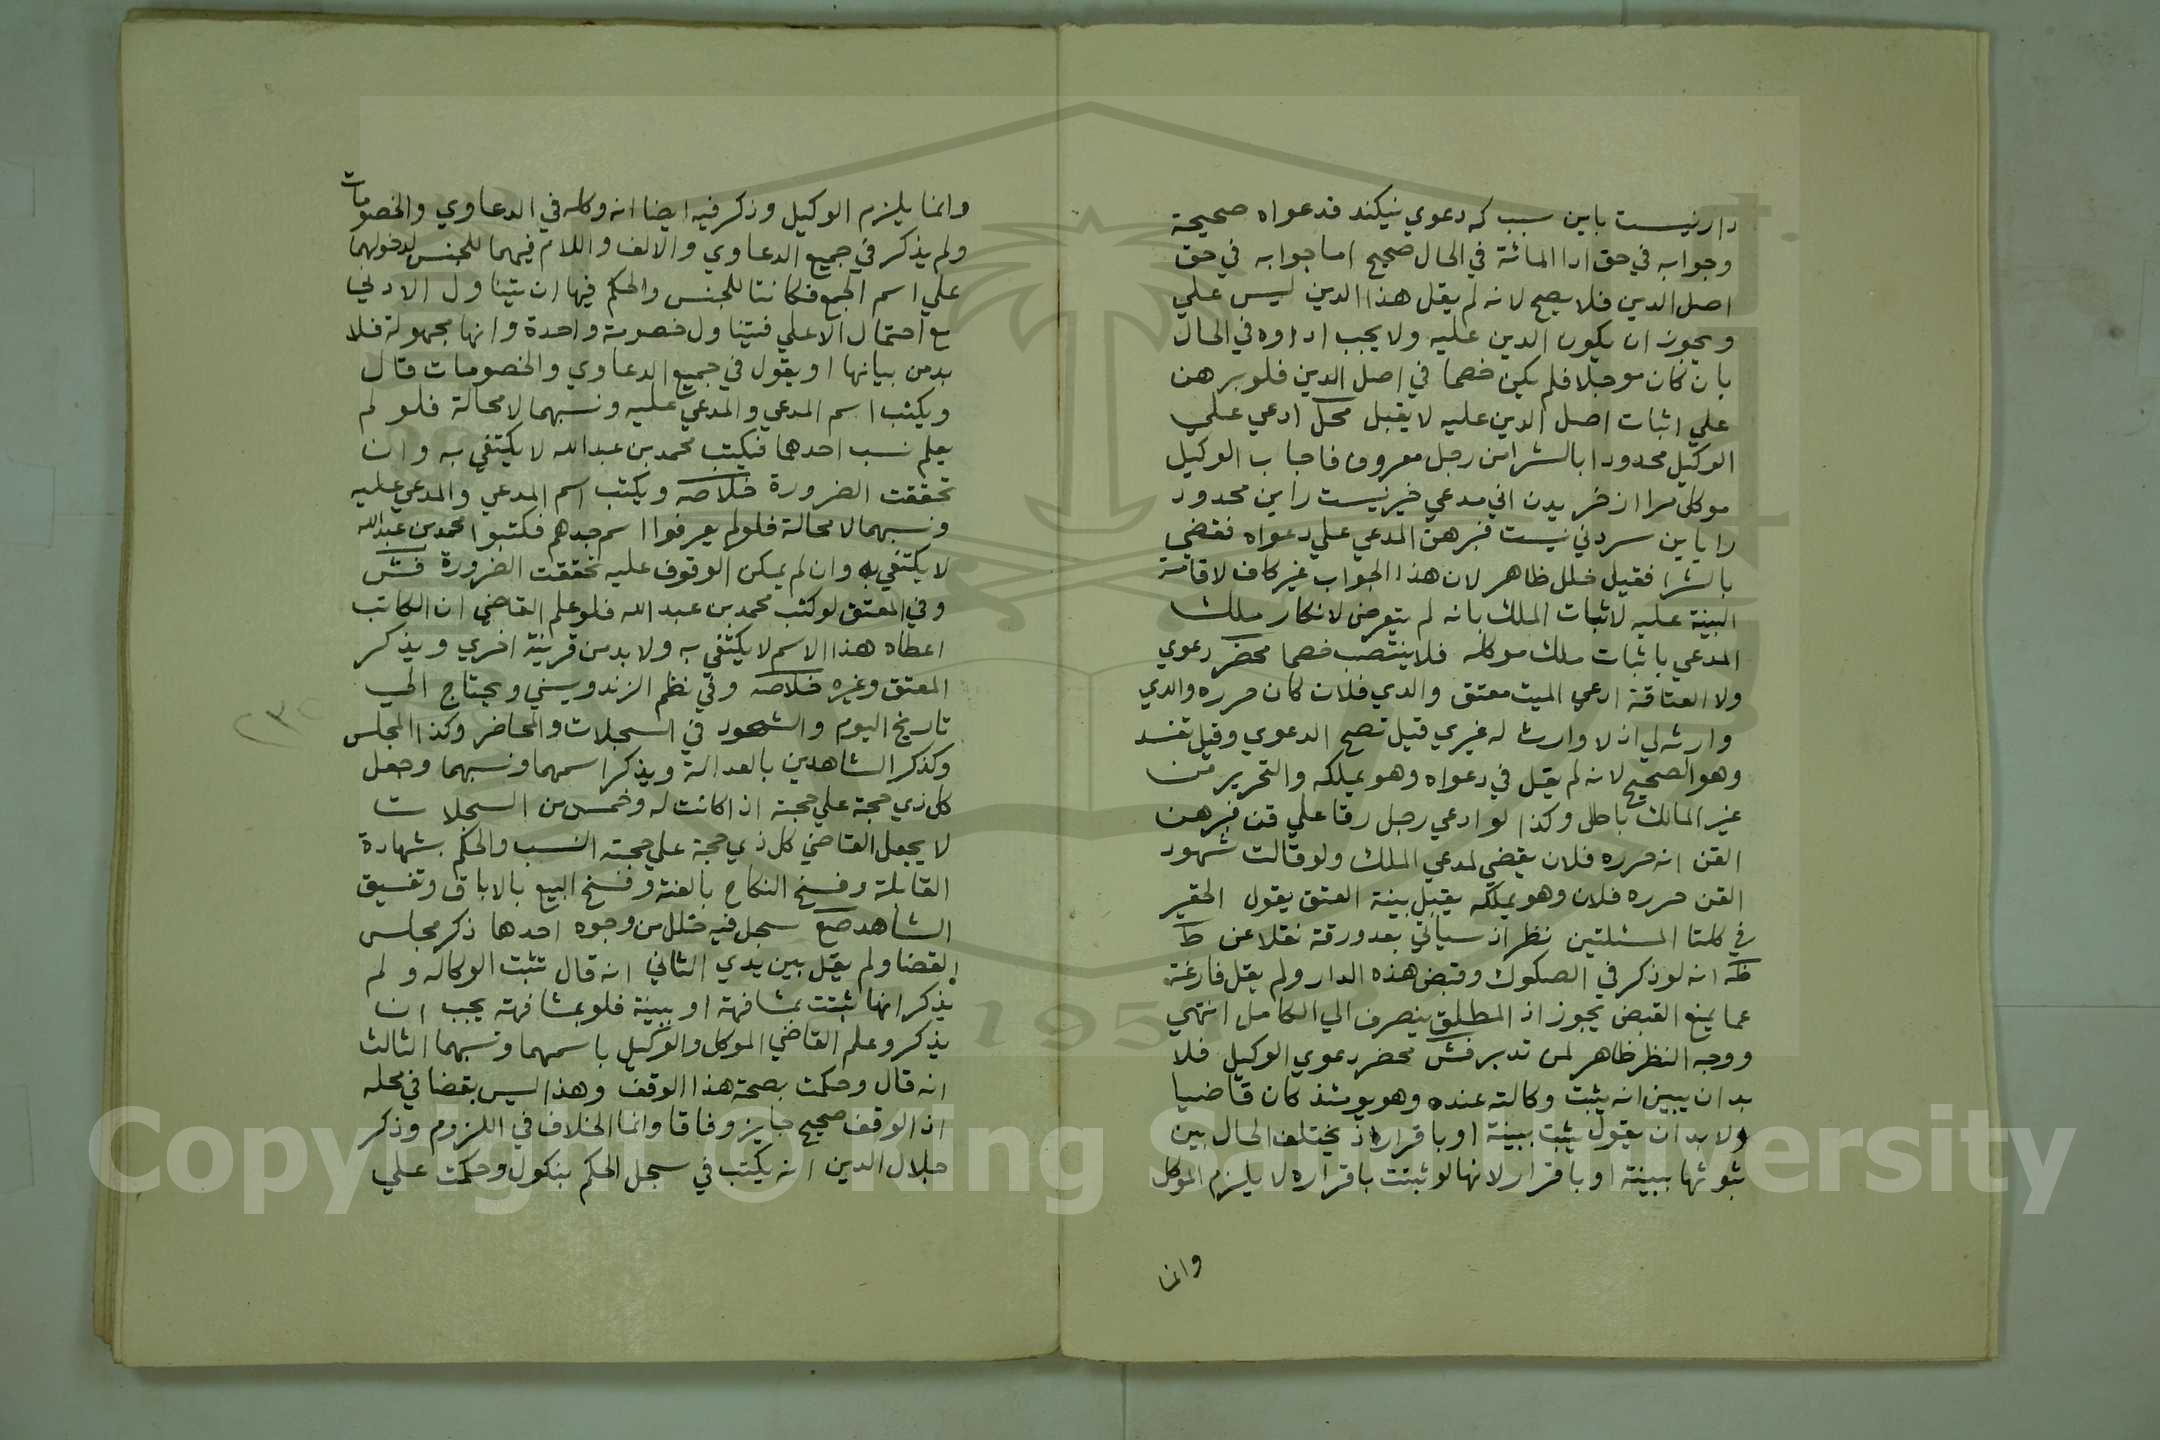 دار نيست باين سبب كه دعوي نيكند فدعواه صحيحة
وجوابه في حق ادا المائة في الحال صحيح اما جوابه في حق
اصل الدين فلا يصح لانه لم يقل هذا الدين ليس علي
ويجوز ان يكون الدين عليه ولا يجب اداوه في الحال
بان كان موجلا فلم يكن خصما في اصل الدين فلو برهن
علي اثبات اصل الدين عليه لا يقبل محل ادعي علي
الوكيل محدودا بالشرا من رجل معروف فاجاب الوكيل
موكل مرا از خريدن اني مدعي خبر نيست واين محدود
را باين سردني نيست فبرهن المدعي علي دعواه فقضي
بالشرا فقيل خلل ظاهر لان هذا الجواب غير كاف لاقامة
البينة عليه لاثبات الملك بانه لم يتعرض لانكار ملك
المدعي باثبات ملك موكله فلا ينتصب خصما محضر دعوي
ولا العتاقة ادعي الميت معتق والدي فلان كان حرره والدي
وارثه لي اذ لا وارث له غيري قيل تصح الدعوي وقيل تفسد
وهو الصحيح لانه لم يقل في دعواه وهو يملكه والتحرير من
غير المالك باطل وكذا لو ادعي رجل رقا علي قن فبرهن
القن انه حرره فلان يقضي لمدعي الملك ولو قالت شهود
القن حرره فلان وهو يملكه يقبل بينة العتق يقول الحقير
في كلتا المسئلتين نظر اذ سياتي بعد ورقة نقلا عن ط
ظه انه لو ذكر في الصكوك وقبض هذه الدار ولم يقل فارغة
عما يمنع القبض يجوز اذ المطلق ينصرف الي الكامل انتهي
ووجه النظر ظاهر لمن تدبر فش محضر دعوي الوكيل فلا
بد ان يبين انه يثبت وكالته عنده وهو يومئذ كان قاضيا
ولا بد ان يقول يثبت ببينة او باقراره اذ يختلف الحال بين
ثبوتها ببينة او باقرار لانها لو ثبتت باقراره لا يلزم الموكل
وانما
وانما يلزم الوكيل وذكر فيه ايضا انه وكله في الدعاوي والخصومات
ولم يذكر في جميع الدعاوي والالف واللام فيهما للجنس لدخولهما
علي اسم الجمع فكانتا للجنس والحكم فيها ان يتناول الادني
مع احتمال الاعلي فيتناول خصومة واحدة وانها مجهولة فلا
بد من بيانها او يقول في جميع الدعاوي والخصومات قال
ويكتب اسم المدعي والمدعي عليه ونسبهما لا محالة فلو لم
يعلم نسب احدهما فيكتب محمد بن عبد الله لا يكتفي به وان
تحققت الضرورة خلاصه ويكتب اسم المدعي والمدعي عليه
ونسبهما لا محالة فلو لم يعرفوا اسم جدهم فكتبوا محمد بن عبد الله
لا يكتفي به وان لم يمكن الوقوف عليه تحققت الضرورة فش
وفي المعتق لو كتب محمد بن عبد الله فلو علم القاضي ان الكاتب
اعطاه هذا الاسم لا يكتفي به ولا بد من قرينة اخري ويذكر
المعتق وغيره خلاصه وفي نظم الزندويسني ويحتاج الي
تاريخ اليوم والشهود في السجلات والمحاضر وكذا المجلس
وكذكر الشاهدين بالعدالة ويذكر اسمهما ونسبهما وجعل
كل ذي حجة علي حجته اذا كانت له وخمس من السجلات
لا يجعل القاضي كل ذي حجة علي حجته النسب والحكم بشهادة
القابلة وفسخ النكاح بالعنة وفسخ البيع بالاباق وتفسيق
الشاهد صع سجل فيه خلل من وجوه احدها ذكر مجلس
القضا ولم يقل بين يدي الثاني انه قال تثبت الوكاله ولم
يذكر انها ثبتت بمشافهة او ببينة فلو بمشافهة يجب ان
يذكر وعلم القاضي الموكل والوكيل باسمهما ونسبهما الثالث
انه قال وحكمت بصحة هذا الوقف وهذا ليس بقضا في محله
اذ الوقف صحيح جايز وفاقا وانما الخلاف في اللزوم وذكر
جلال الدين انه يكتب في سجل الحكم بنكول وحكمت علي
Copyright © King Saud University
1957